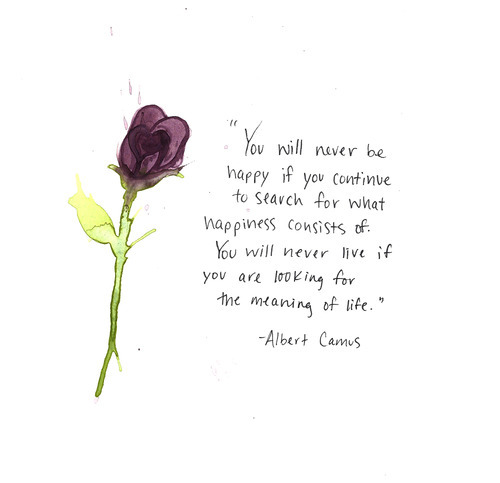 "You will never be
happy if you continue
to search for what
happiness consists of.
You will never live if
you are looking for
the meaning of life."
-Albert Camus